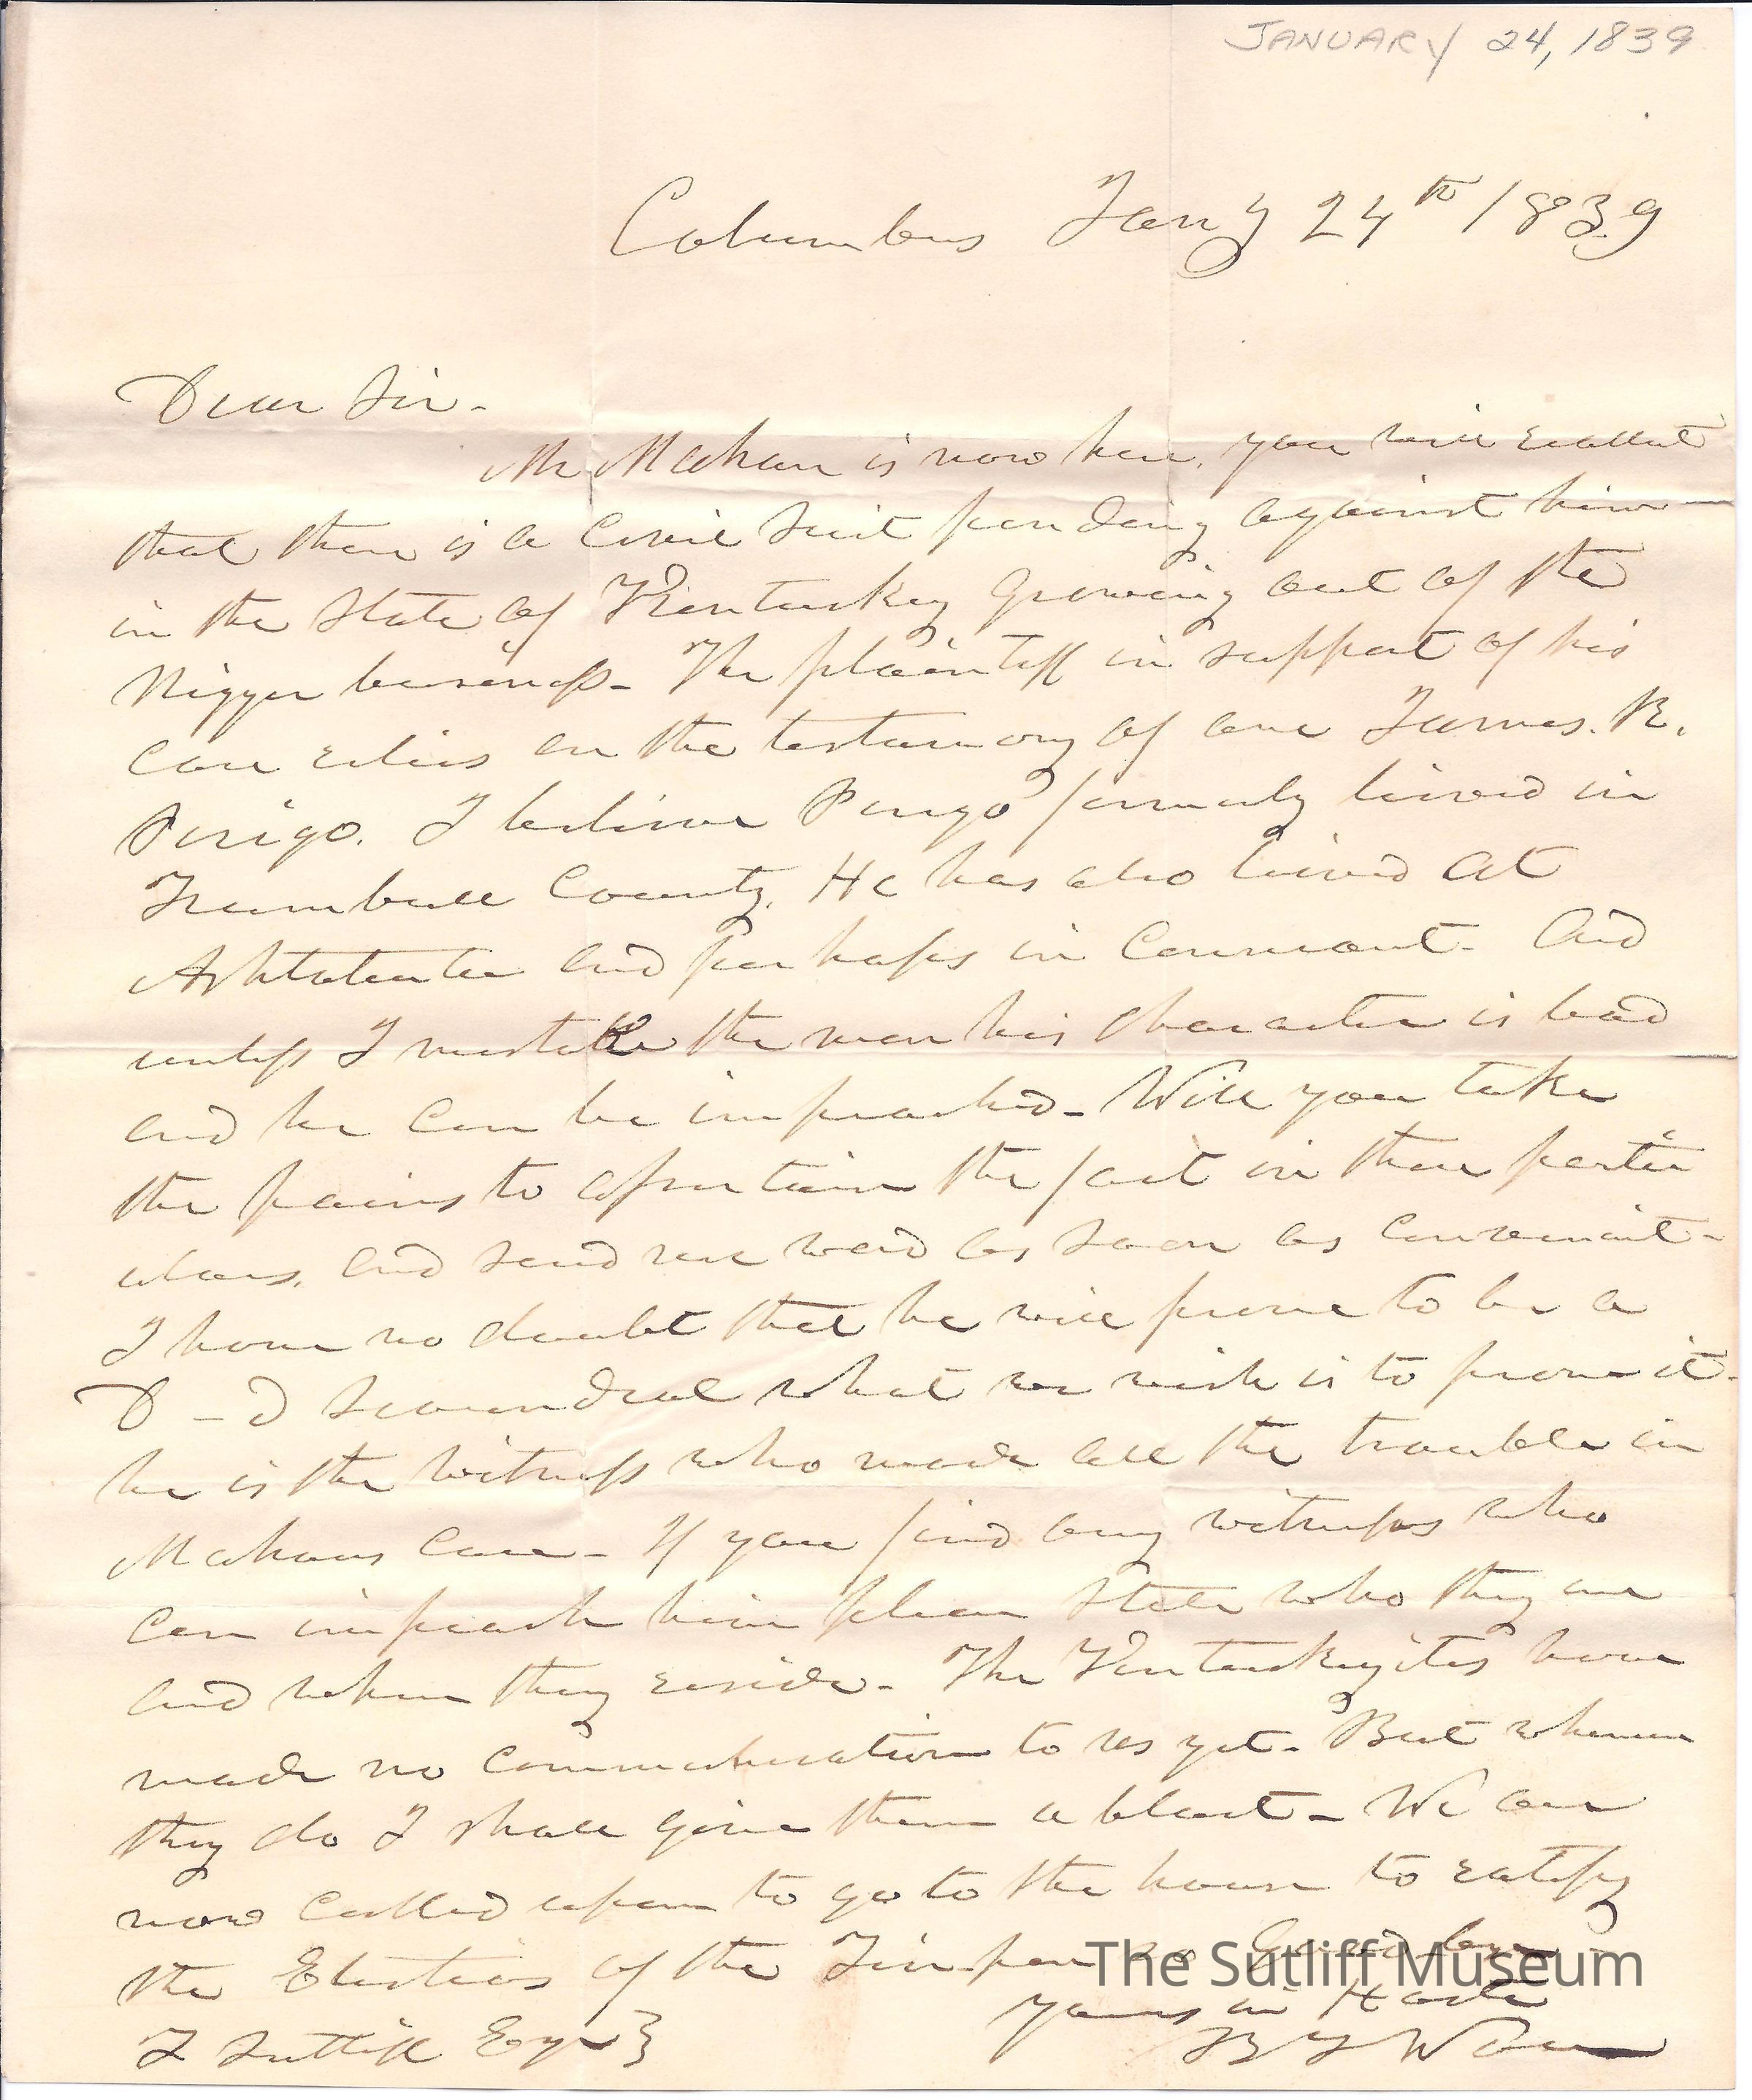 JANUARY 24, 1839
Columbus Jany 24th 1839
Dear Sir -
Mr Mahan is now here, you will recollect
that there is a Civil Suit pending against him
in the State of Kentuckey growing out of the
Nigger business - The plaintiff in support of his
case relies on the testamony of one James. R.
Perigo. I believe Perigo formerly lived in
Trumbull County. He has also lived at
Ashtabula and perhaps in Conneaut - And
unless I mistake the man his character is bad
and he can be impeached - Will you take
the pains to assertain the fact in these partic
ulars, and send me word as soon as convenient -
I have no doubt that he will prove to be a
D - d scoundrel what we wish is to prove it -
he is the witness who made all the trouble in
Mahans case - If you find any witnesses who
can impeach him please state who they are
and where they reside - The Kentuckeyites have
made no communication to us yet - But whenever
they do I shall give them a blast - We are
now called upon to go to the house to ratify
the Election of the so Good bye -
The Sutliff Museum
Yours in Haste
B F Wade
L Sutliff Esqr }